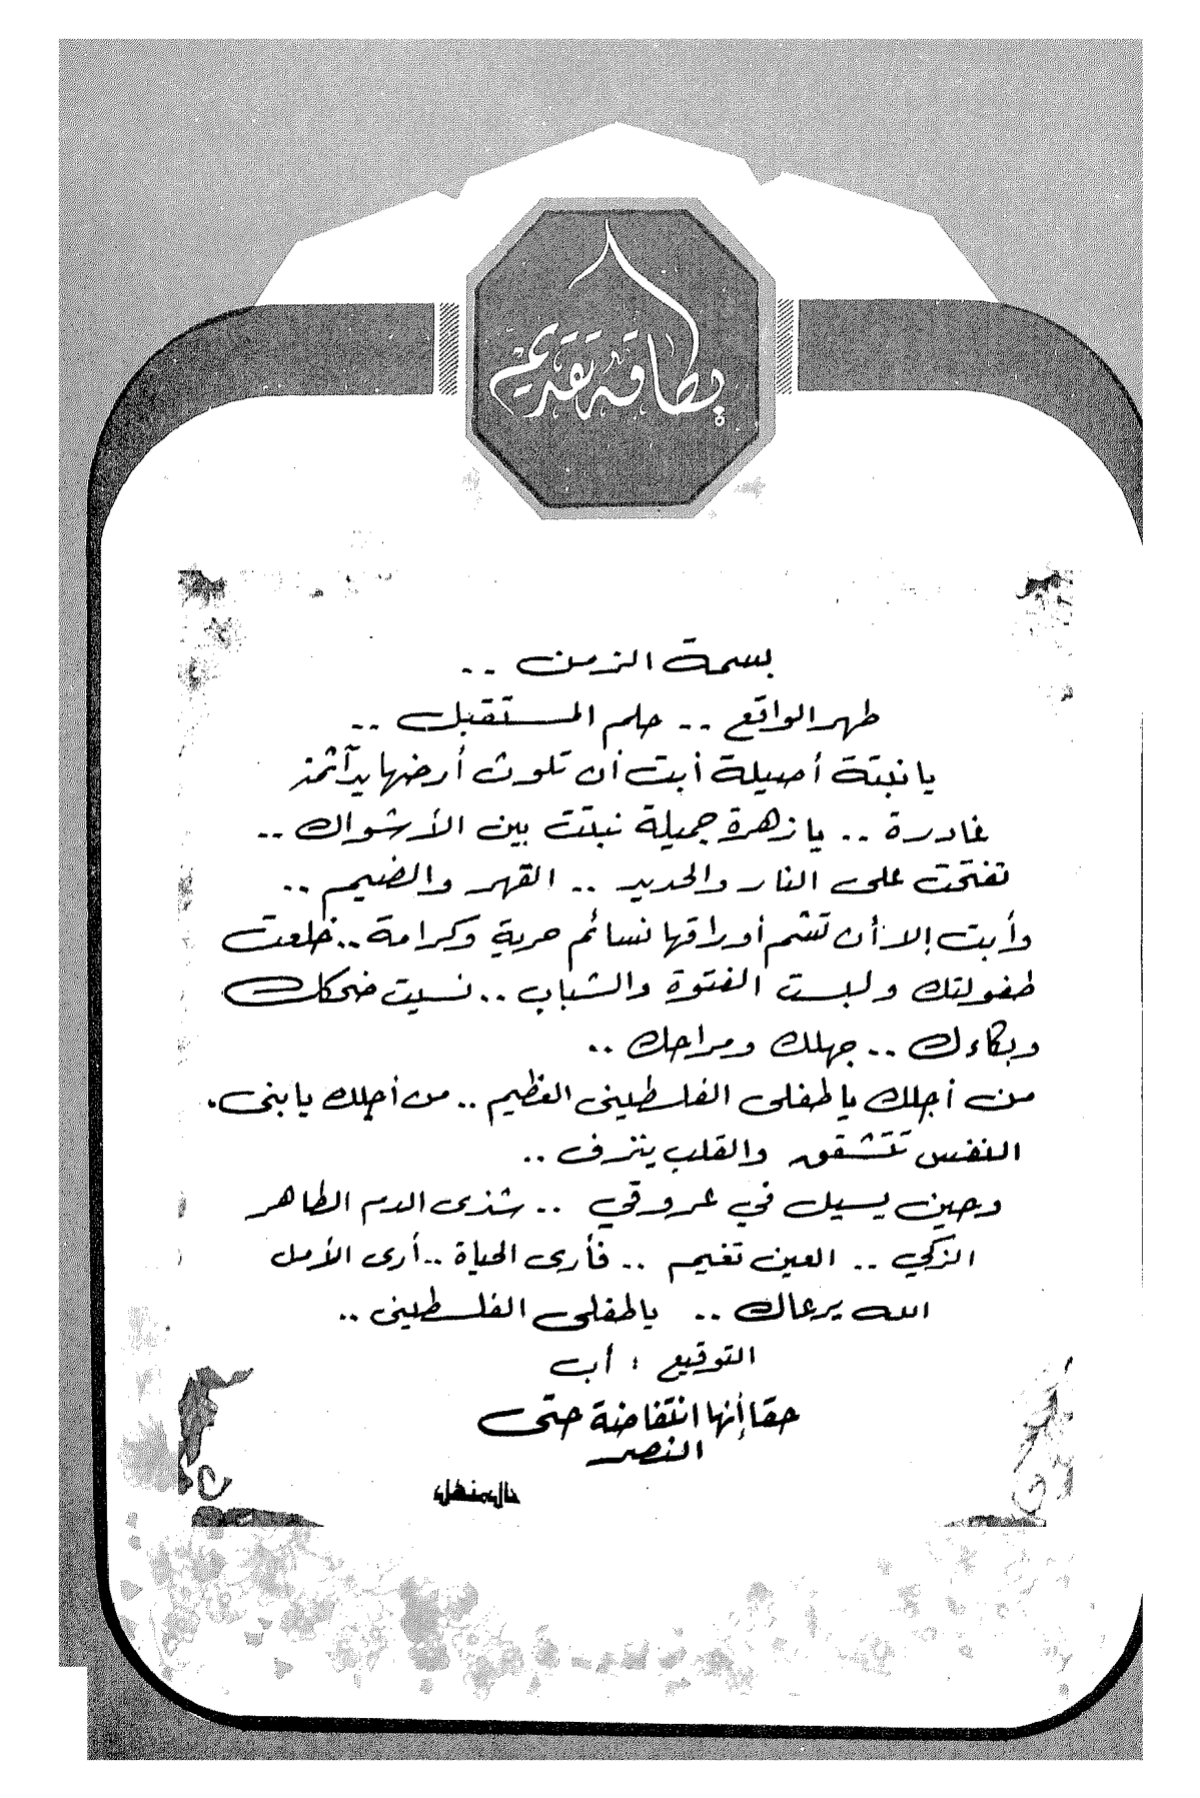 بطاقة تقديم
بسمة الزمن ..
طهر الواقع .. حلم المستقبل ..
يا نبتة أصيلة أبت أن تلوث أرضها يد آثمة
غادرة .. يا زهرة جميلة نبتت بين الأشواك ..
تفتحت على النار والحديد .. القهر والضيم ..
وأبت إلا أن تشم أوراقها نسائم حرية وكرامة .. خلعت
طفولتك ولبست الفتوة والشباب .. نسيت ضحكك
وبكاءك .. جهلك ومراحك ..
من أجلك يا طفلى الفلسطينى العظيم .. من أجلك يا بنى.
النفس تتشقق والقلب ينزف ..
وحين يسيل في عروقي .. شذى الدم الطاهر
الزكي .. العين تغيم .. فأرى الحياة .. أرى الأمل
الله يرعاك .. يا طفلى الفلسطينى ..
التوقيع : أب
حقا إنها انتفاضة حتى
النصر